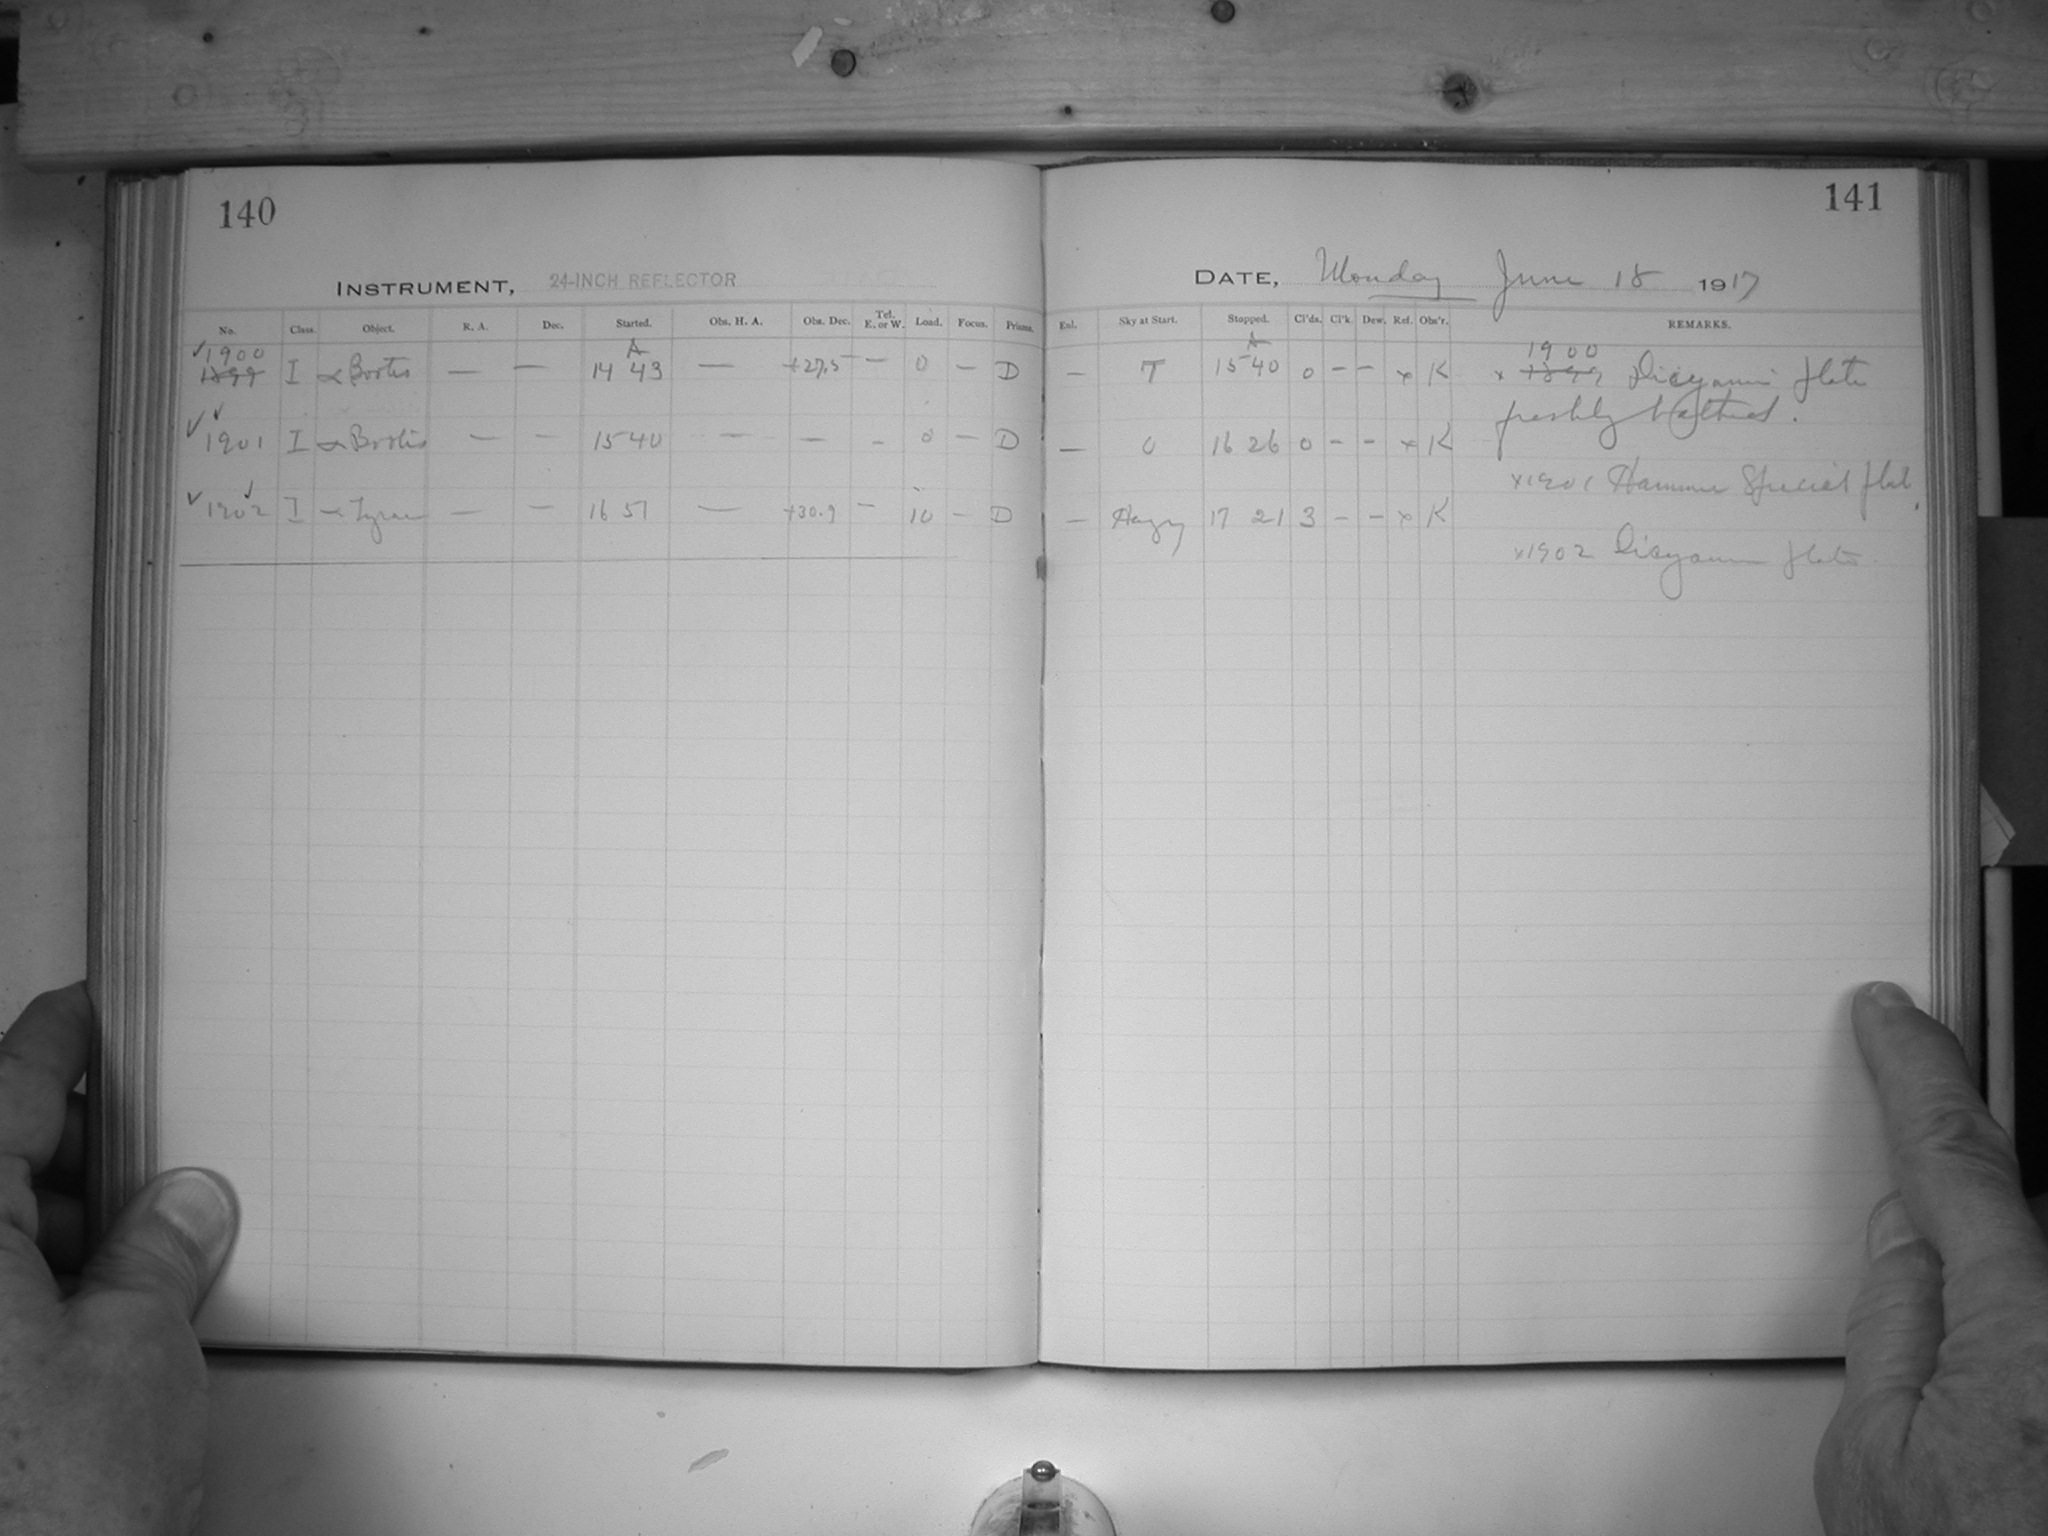 140
INSTRUMENT, 24-INCH REFLECTOR
No. Class. Object. R. A. Dec. Started. Obs. H. A. Obs. Dec. Tel. E. or W. Load. Focus. Prisms.
✓1900 A
1899 I α Bootis — — 14 43 — +27.5 — 0 — D
✓✓
1901 I α Bootis — — 15 40 — — - 0 — D
✓✓
1902 I α Lyrae — — 16 51 — +30.9 — 10 — D
141
DATE, Monday June 18 1917
Enl. Sky at Start. Stopped. Cl'ds. Cl'k. Dew. Ref. Obs'r. REMARKS.
A 1900
— T 15 40 0 - - x K x 1899 Dicyanin Plate
freshly bathed.
— 0 16 26 0 - - x K
x1901 Hammer Special Plate
— Hazy 17 21 3 - - x K
x1902 Dicyanin Plate